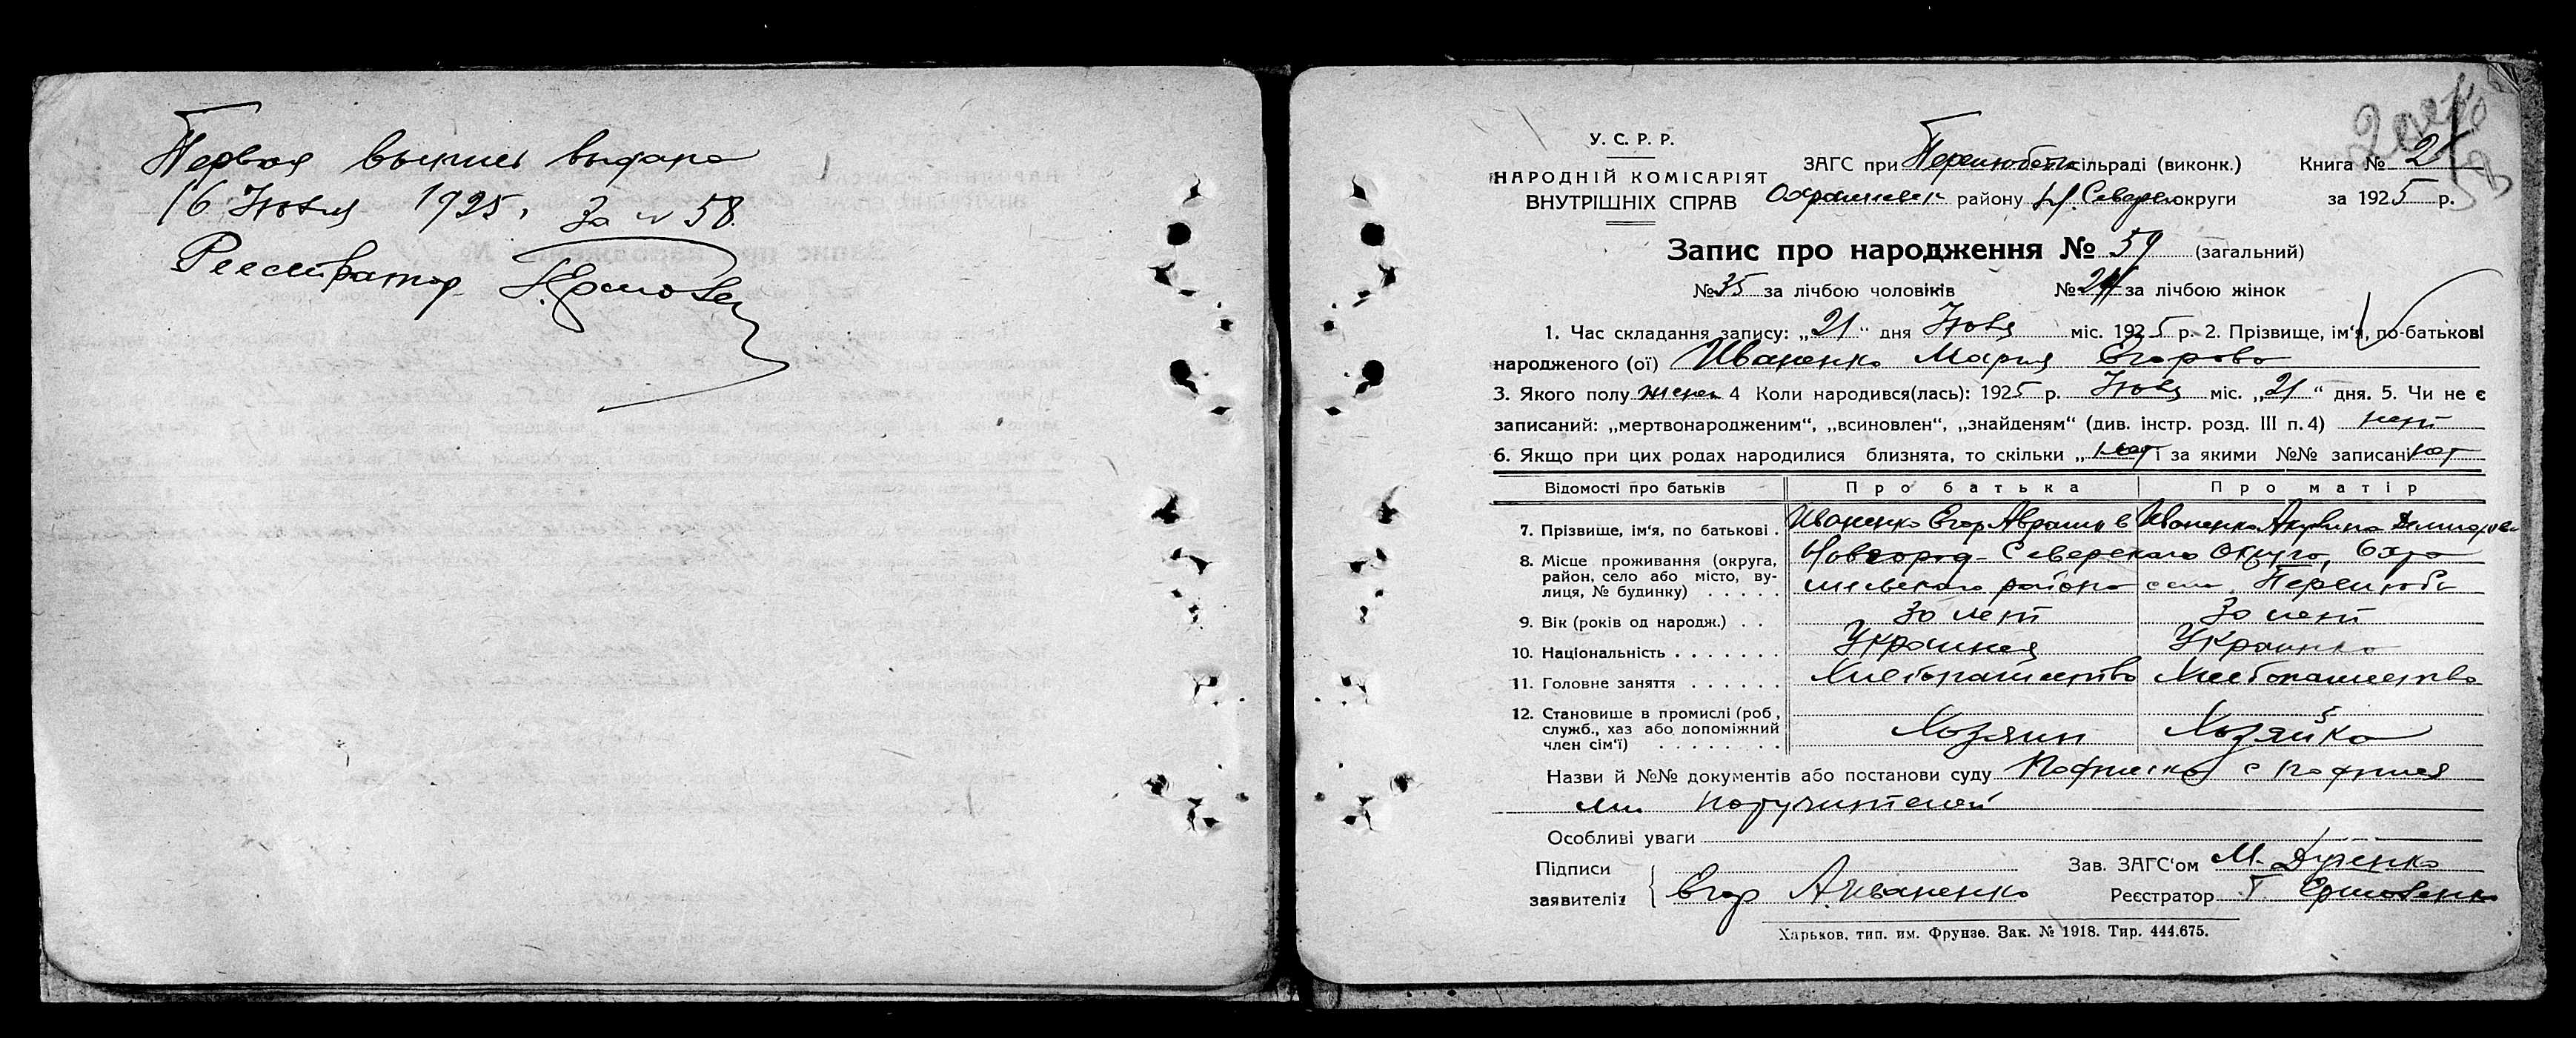 Первая выпись выдана
16 Июня 1925, за № 58.
Регистратор
У. С. Р. Р.
НАРОДНІЙ КОМІСАРІЯТ
ВНУТРІШНІХ СПРАВ
ЗАГС при Перелюбськ сільраді (виконк.)
районy Н. Северск округи
Книга № 2
за 1925 р.
58
Запис про народження № 59 (загальний)
№ 35 за лічбою чоловіків № 24 за лічбою жінок
1. Час складання запису: „21“ дня Июля міс. 1925 р. 2. Прізвище, ім'я, по-батькові
народженого (ої) Иваненко Мария Егорово
3. Якого полу женск 4 Коли народився(лась): 1925 р. Июля міс. „21“ дня. 5. Чи не є
записаний: „мертвонародженим“, „всиновлен“, „знайденям“ (див. інстр. розд. III п. 4) нет
6. Якщо при цих родах народилися близнята, то скільки „нет і за якими №№ записані нет
Відомості про батьків Про батька Про матір
7. Прізвище, ім'я, по батькові . Иваненко Егор Абрамов Иваненко Акулина Демидова
8. Місце проживання (округа, район, село або місто, вулиця, № будинку) . . . . . Новгород-Северскаго округа, Охра
мьевскаго района село Перелюбь
9. Вік (років од народж.) . . 30 лет 30 лет
10. Національність . . . . . . . Украинец Украинка
11. Головне заняття . . . . . . Хлебопашество Хлебопашество
12. Становище в промислі (роб., служб., хаз або допоміжний член сім'ї) . . . . . . . . Хозяин Хозяйка
Назви й №№ документів або постанови суду Подписка с подпися
ми поручителей
Особливі уваги
Підписи
заявителів Егор А. Иваненко
Зав. ЗАГС'ом М.
Реєстратор Г. Ермоленко
Харьков, тип. им. Фрунзе. Зак. № 1918. Тир. 444.675.